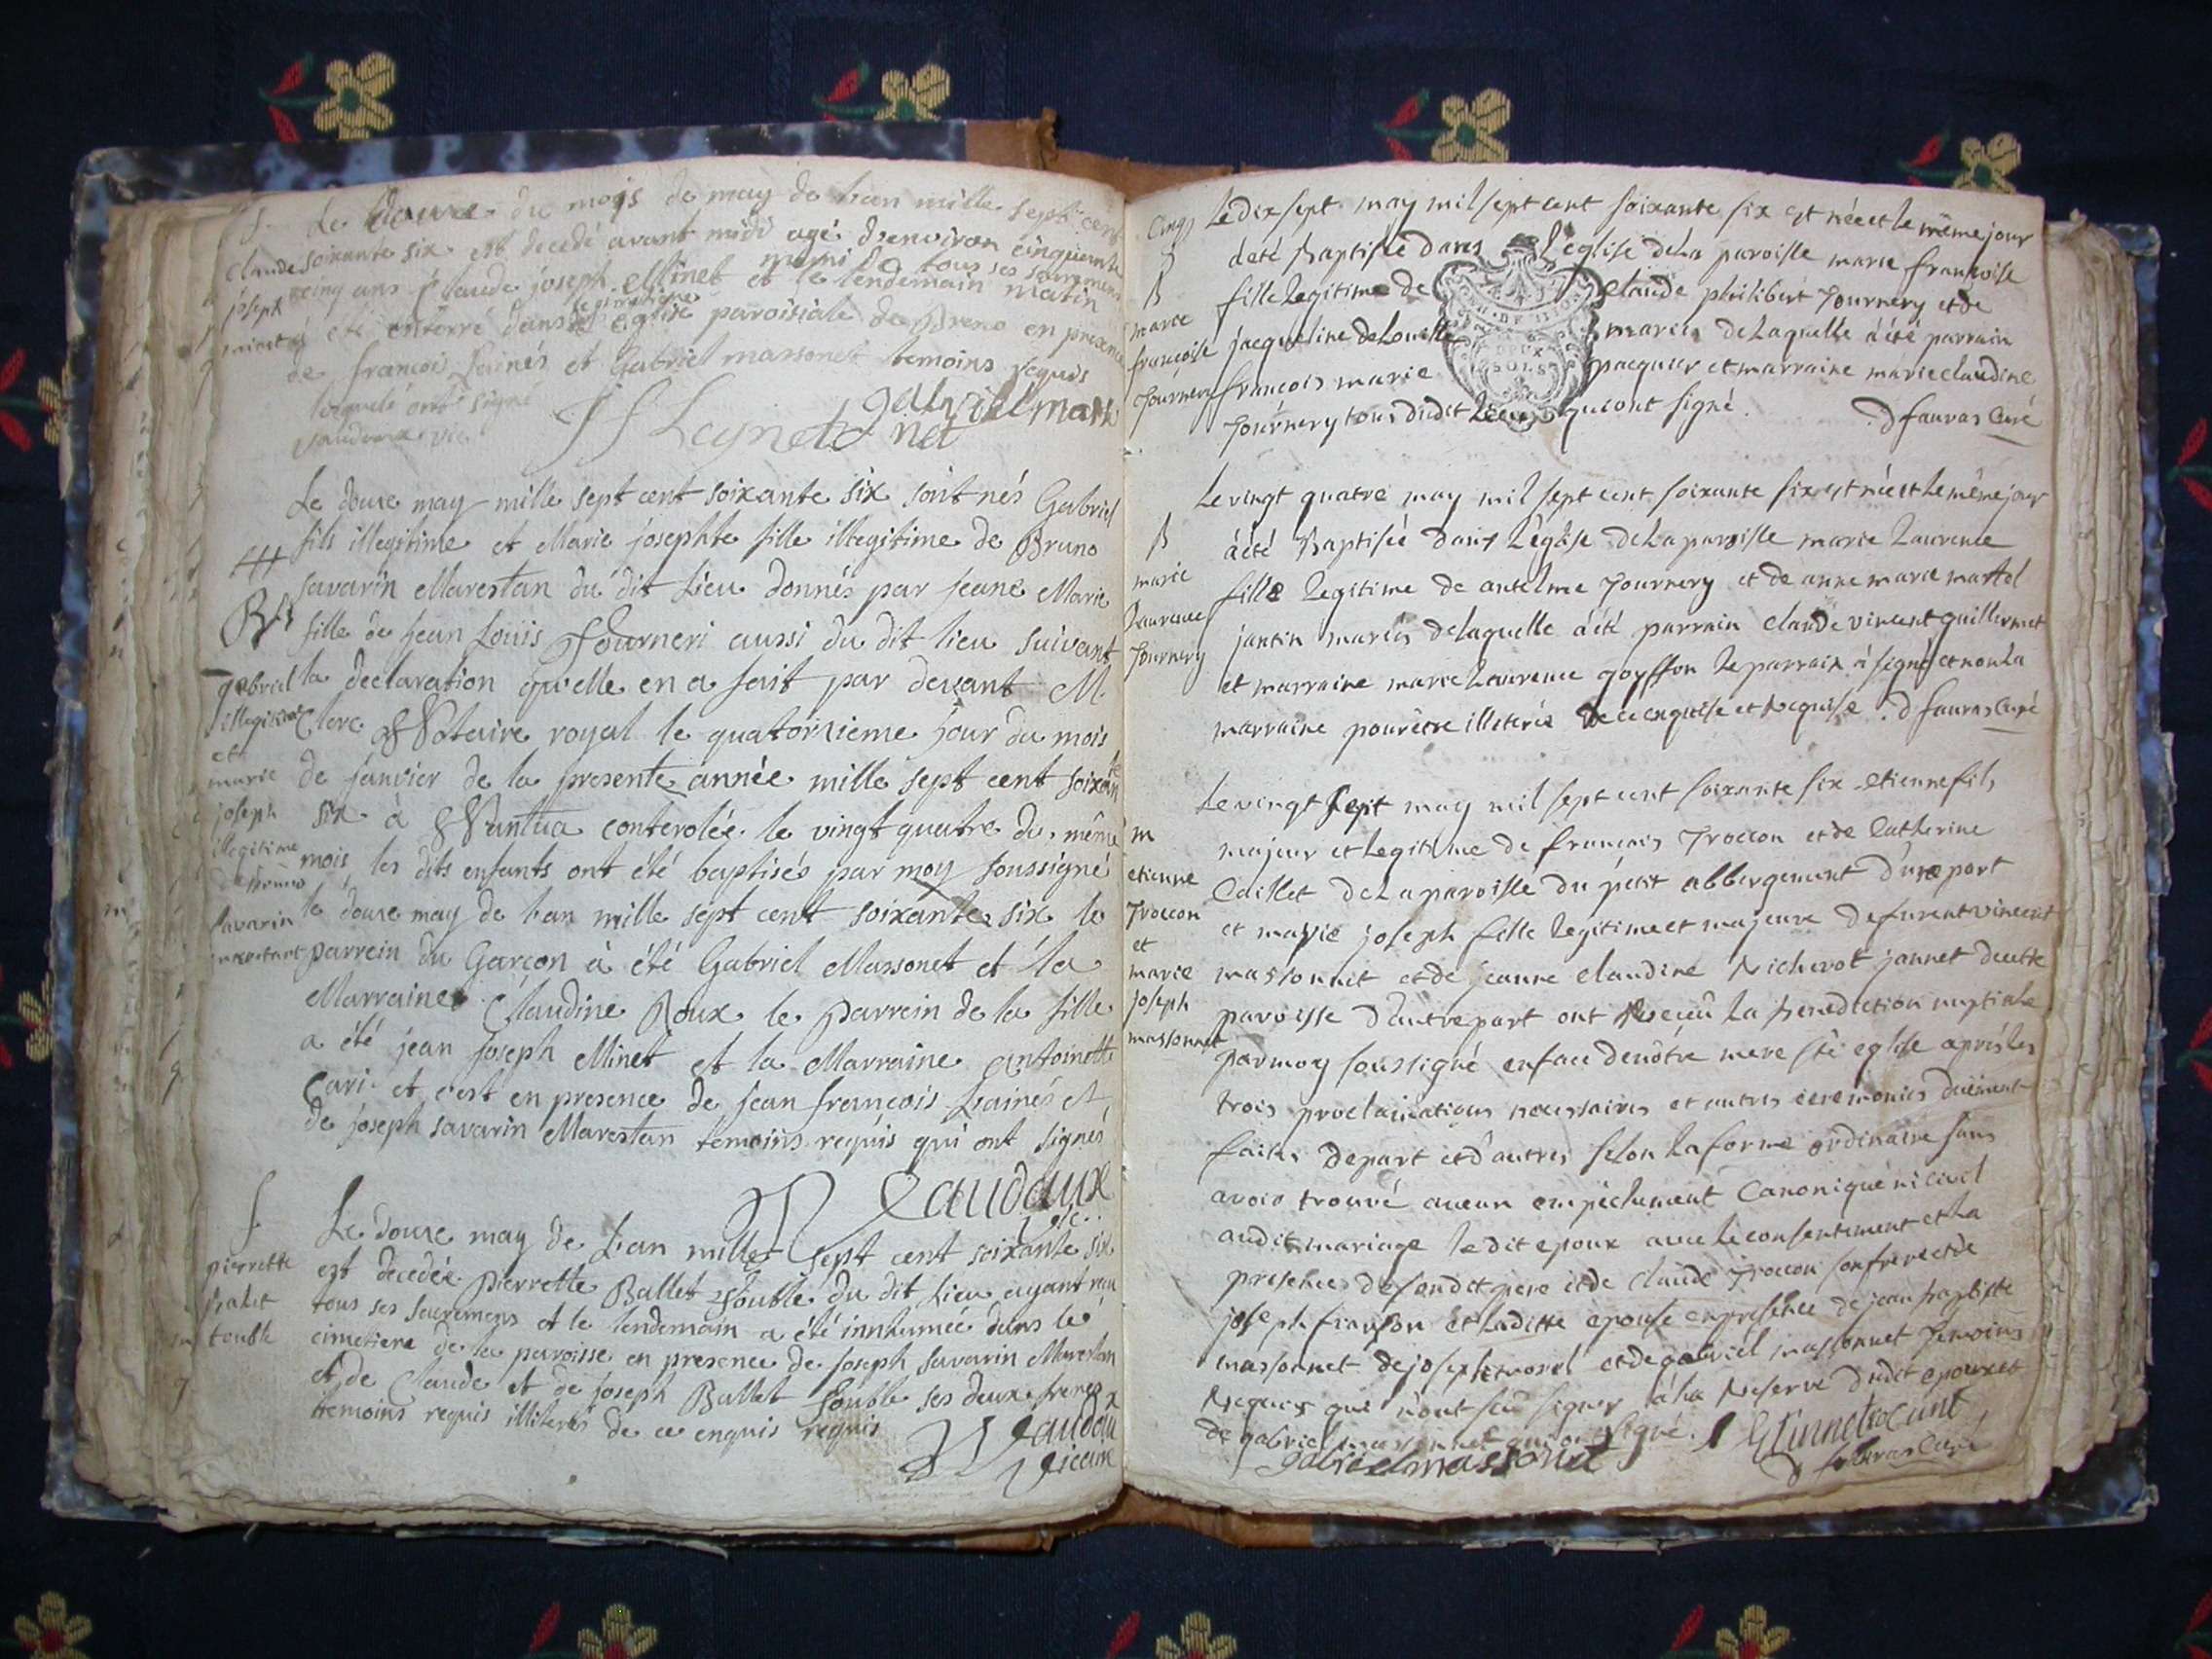 Le douze du mois de may de l'an mille sept cent
soixante six est decedé avant midi agé d'environ cinquante
muni de tous ses sacremens
cinq ans Claude joseph Minet et le lendemain matin
à été enterré dans l'église paroisiale de Breno en presence
de francois Lainés et Gabriel massonet temoins requis
lesquels ont signé
gabriel mass
net
f
Claude
joseph
minet
Le douze may mille sept cent soixante six sont nés Gabriel
fils illegitime et Marie josephte fille illegitime de Bruno
savarin Marestan du dit Lieu donnés par jeane Marie
fille de jean Loüis Fourneri aussi du dit lieu suivant
la declaration qu'elle en a fait par devant M.
Clerc Notaire royal le quatorzieme jour du mois
de janvier de la presente année mille sept cent soixante
six à Nantua conterolée le vingt quatre du même
mois, les dits enfants ont été baptisés par moy soussigné
le douze may de l'an mille sept cent soixante six le
parrein du Garçon à été Gabriel Massonet et la
Marraine Claudine Roux le parrein de la fille
a été jean joseph Minet et la Marraine antoinette
Cari et c'est en presence de jean francois Lainés et
de joseph savarin Marestan temoins requis qui ont signés
gabriel
illegitime
et
marie
joseph
illegitime
de bruno
savarin
marestant
Vaudaux
Le douze may de l'an mille sept cent soixante six
est decedée pierrette Ballet Touble du dit Lieu ayant reçu
tous ses sacremens et le lendemain a été innhumée dans le
cimetiere de la paroisse en presence de joseph savarin Marestan
et de Claude et de joseph Ballet Touble ses deux freres
temoins requis illiterés de ce enquis requis
Vaudaux
vicaire
f
pierrette
balet
touble
Cinq
Le dix sept may mil sept cent soixante six est née et le même jour
a été Baptisée dans l'eglise de la paroisse marie francoise
fille legitime de claude philibert Fournery et de
jacqueline mariés de laquelle à été parrain
francois marie jacquier et marraine marie claudine
fournery tous dudit Lieu qui ont signé. D fauras Curé
DEUX
SOLS
B
marie
françoise
fournery
Le vingt quatre may mil sept cent soixante six est née et le même jour
à été Baptisée dans l'église de la paroisse marie Laurence
fille legitime de antelme Fournery et de anne marie martel
jantin mariés de laquelle à été parrain claude vincent guillermet
et marraine marie Laurence goyffon le parrain à signé et non la
marraine pour être illiterée de ce enquise et Requise. D fauras Curé
B
marie
Laurence
fournery
Le vingt sept may mil sept cent soixante six etienne fils
majeur et legitime de francois Troccon et de Catherine
Caillet de la paroisse du petit abbergement d'une part
et marie joseph fille legitime et majeure de furent vincent
massonnet et de jeanne claudine Richerot jannet de cette
paroisse d'autre part ont Receu la Benediction nuptiale
par moy soussigné en face de nôtre mere ste eglise après les
trois proclamations necessaires et autres ceremonies duëment
faites de part et d'autres selon la forme ordinaire sans
avoir trouvé aucun empêchement Canonique ni civil
audit mariage le dit epoux avec le consentement et la
presence de sondit pere et de claude Troccon son frere et de
joseph françon et laditte epouse en presence de jean baptiste
massonnet de joseph morel et de gabriel massonnet Temoins
Requis qui n'ont seu signer à la Reserve dudit epoux et
de gabriel massonnet qui ont signé.
gabriel massonet
D fauras Curé
m
etienne
Troccon
et
marie
joseph
massonnet